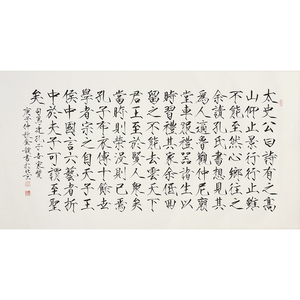 太史公曰詩有之高
山仰止景行行止雖
不能至然心鄉往之
余讀孔氏書想見其
為人適魯觀仲尼廟
堂車服禮器諸生以
時習禮其家余低回
留之不能去云天下
君王至於賢人眾矣
當時則榮沒則已焉
孔子布衣傳十餘世
學者宗之自天子王
侯中國言六藝者折
中於夫子可謂至聖
矣
司馬遷孔子世家贊
仲秋